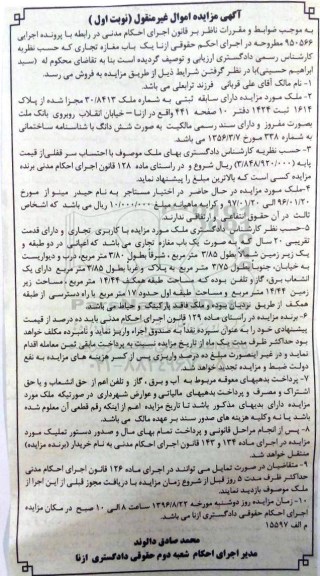 آگهی مزایده اموال غیرمنقول (نوبت اول)
به موجب ضوابط و مقررات ناظر بر قانون اجرای احکام مدنی در رابطه با پرونده اجرایی
۹۵۰۵۶۶ مطروحه در اجرای احکام حقوقی ازنا یک باب مغازه تجاری که حسب نظریه
کارشناس رسمی دادگستری ارزیابی و توصیف گردیده است بنا به تقاضای محکوم له (سید
ابراهیم حسینی) با در نظر گرفتن شرایط ذیل از طریق مزایده به فروش می رسد.
۱- نام مالک آقای علی قربانی فرزند ترابعلی می باشد.
۲- ملک مورد مزایده دارای سابقه ثبتی به شماره ملک ۳۰/۸۴۱۳ مجزا شده از پلاک
۱۶۱۴ ثبت ۱۴۲۴ دفتر ۱۰ صفحه ۴۴۱ واقع در ازنا - خیابان انقلاب روبروی بانک ملت
بصورت مفروز و دارای سند رسمی مالکیت به صورت شش دانگ با شناسنامه ساختمانی
به شماره ۳۳۸ مورخ ۱۳۵۶/۳/۷ می باشد.
۳- حسب نظریه کارشناس دادگستری بهای ملک موصوف با احتساب سرقفلی از قیمت
پایه (۳/۸۴۸/۹۲۰/۰۰۰) ریال شروع و در راستای ماده ۱۲۸ قانون اجرای احکام مدنی برنده
مزایده کسی است که بالاترین مبلغ را پیشنهاد نماید.
۴- ملک مورد مزایده در حال حاضر در اختیار مستاجر به نام حیدر مینو از مورخ
۹۶/۰۱/۲۰ الی ۹۷/۰۱/۲۰ و کرایه ماهیانه مبلغ ۱۰/۰۰۰/۰۰۰ ریال می باشد که اشخاص
ثالث در آن حقوق انتفاعی و ارتفاقی ندارند.
۵- حسب نظر کارشناس دادگستری ملک مورد مزایده با کاربری تجاری و دارای قدمت
تقریبی ۲۰ سال که به صورت یک باب مغازه تجاری می باشد که اعیانی در دو طبقه و
یک زیر زمین شمالاً بطول ۳/۸۵ متر مربع ، شرقاً بطول ۳/۸۰ متر مربع، درب و دیواریست
به خیابان، جنوباً بطول ۳/۷۵ متر مربع به پلاک و غرباً بطول ۳/۸۵ متر مربع دارای یک
انشعاب برق، گاز و تلفن بوده که مساحت طبقه همکف ۱۴/۴۴ متر مربع ، مساحت زیر
زمین ۱۴/۴۴ متر مربع و مساحت طبقه اول حدود ۱۷ متر مربع با راه دسترسی از طبقه
همکف از طریق نردبان بوده و ملک فاقد پارکینگ و حیاط می باشد.
۶- برنده مزایده در راستای ماده ۱۲۹ قانون اجرای احکام مدنی باید ده درصد از قیمت
پیشنهادی خود را به عنوان سپرده نقداً به صندوق اجراء واریز نماید و نامبرده مکلف خواهد
بود حداکثر ظرف مدت یک ماه از تاریخ مزایده نسبت به پرداخت مابقی ثمن معامله اقدام
نماید و در غیر اینصورت مبلغ ده درصد واریزی پس از کسر هزینه های مزایده به نفع
دولت ضبط و مزایده تجدید خواهد شد.
۷- پرداخت بدهیهای معوقه مربوط به آب و برق ، گاز و تلفن اعم از حق انشعاب و یا حق
اشتراک و مصرف و پرداخت بدهیهای مالیاتی و عوارض شهرداری در صورتیکه ملک مورد
مزایده دارای بدهیهای مذکور باشد تا تاریخ مزایده اعم از اینکه رقم قطعی آن معلوم شده
باشد یا نه و کلیه هزینه های صدور سند بر عهده مالک می باشد.
۸- پس از انجام مراحل قانونی و پرداخت تمام بهای مال و صدور دستور تملیک مورد
مزایده در اجرای ماده ۱۳۴ و ۱۴۳ قانون اجرای احکام مدنی به نام خریدار (برنده مزایده)
منتقل خواهد شد.
۹- متقاضیان در صورت تمایل می توانند در اجرای ماده ۱۲۶ قانون اجرای احکام مدنی
حداکثر ظرف مدت ۵ روز قبل از شروع زمان مزایده با دریافت مجوز قبلی از این اجرا از
ملک موصوف بازدید نمایند.
۱۰- زمان مزایده روز دوشنبه مورخه ۱۳۹۶/۸/۲۲ ساعت ۸ الی ۱۰ صبح در مکان مزایده
اجرای احکام حقوقی دادگستری ازنا می باشد.
م الف ۱۵۵۹۷
محمد صادق دالوند
مدیر اجرای احکام شعبه دوم حقوقی دادگستری ازنا